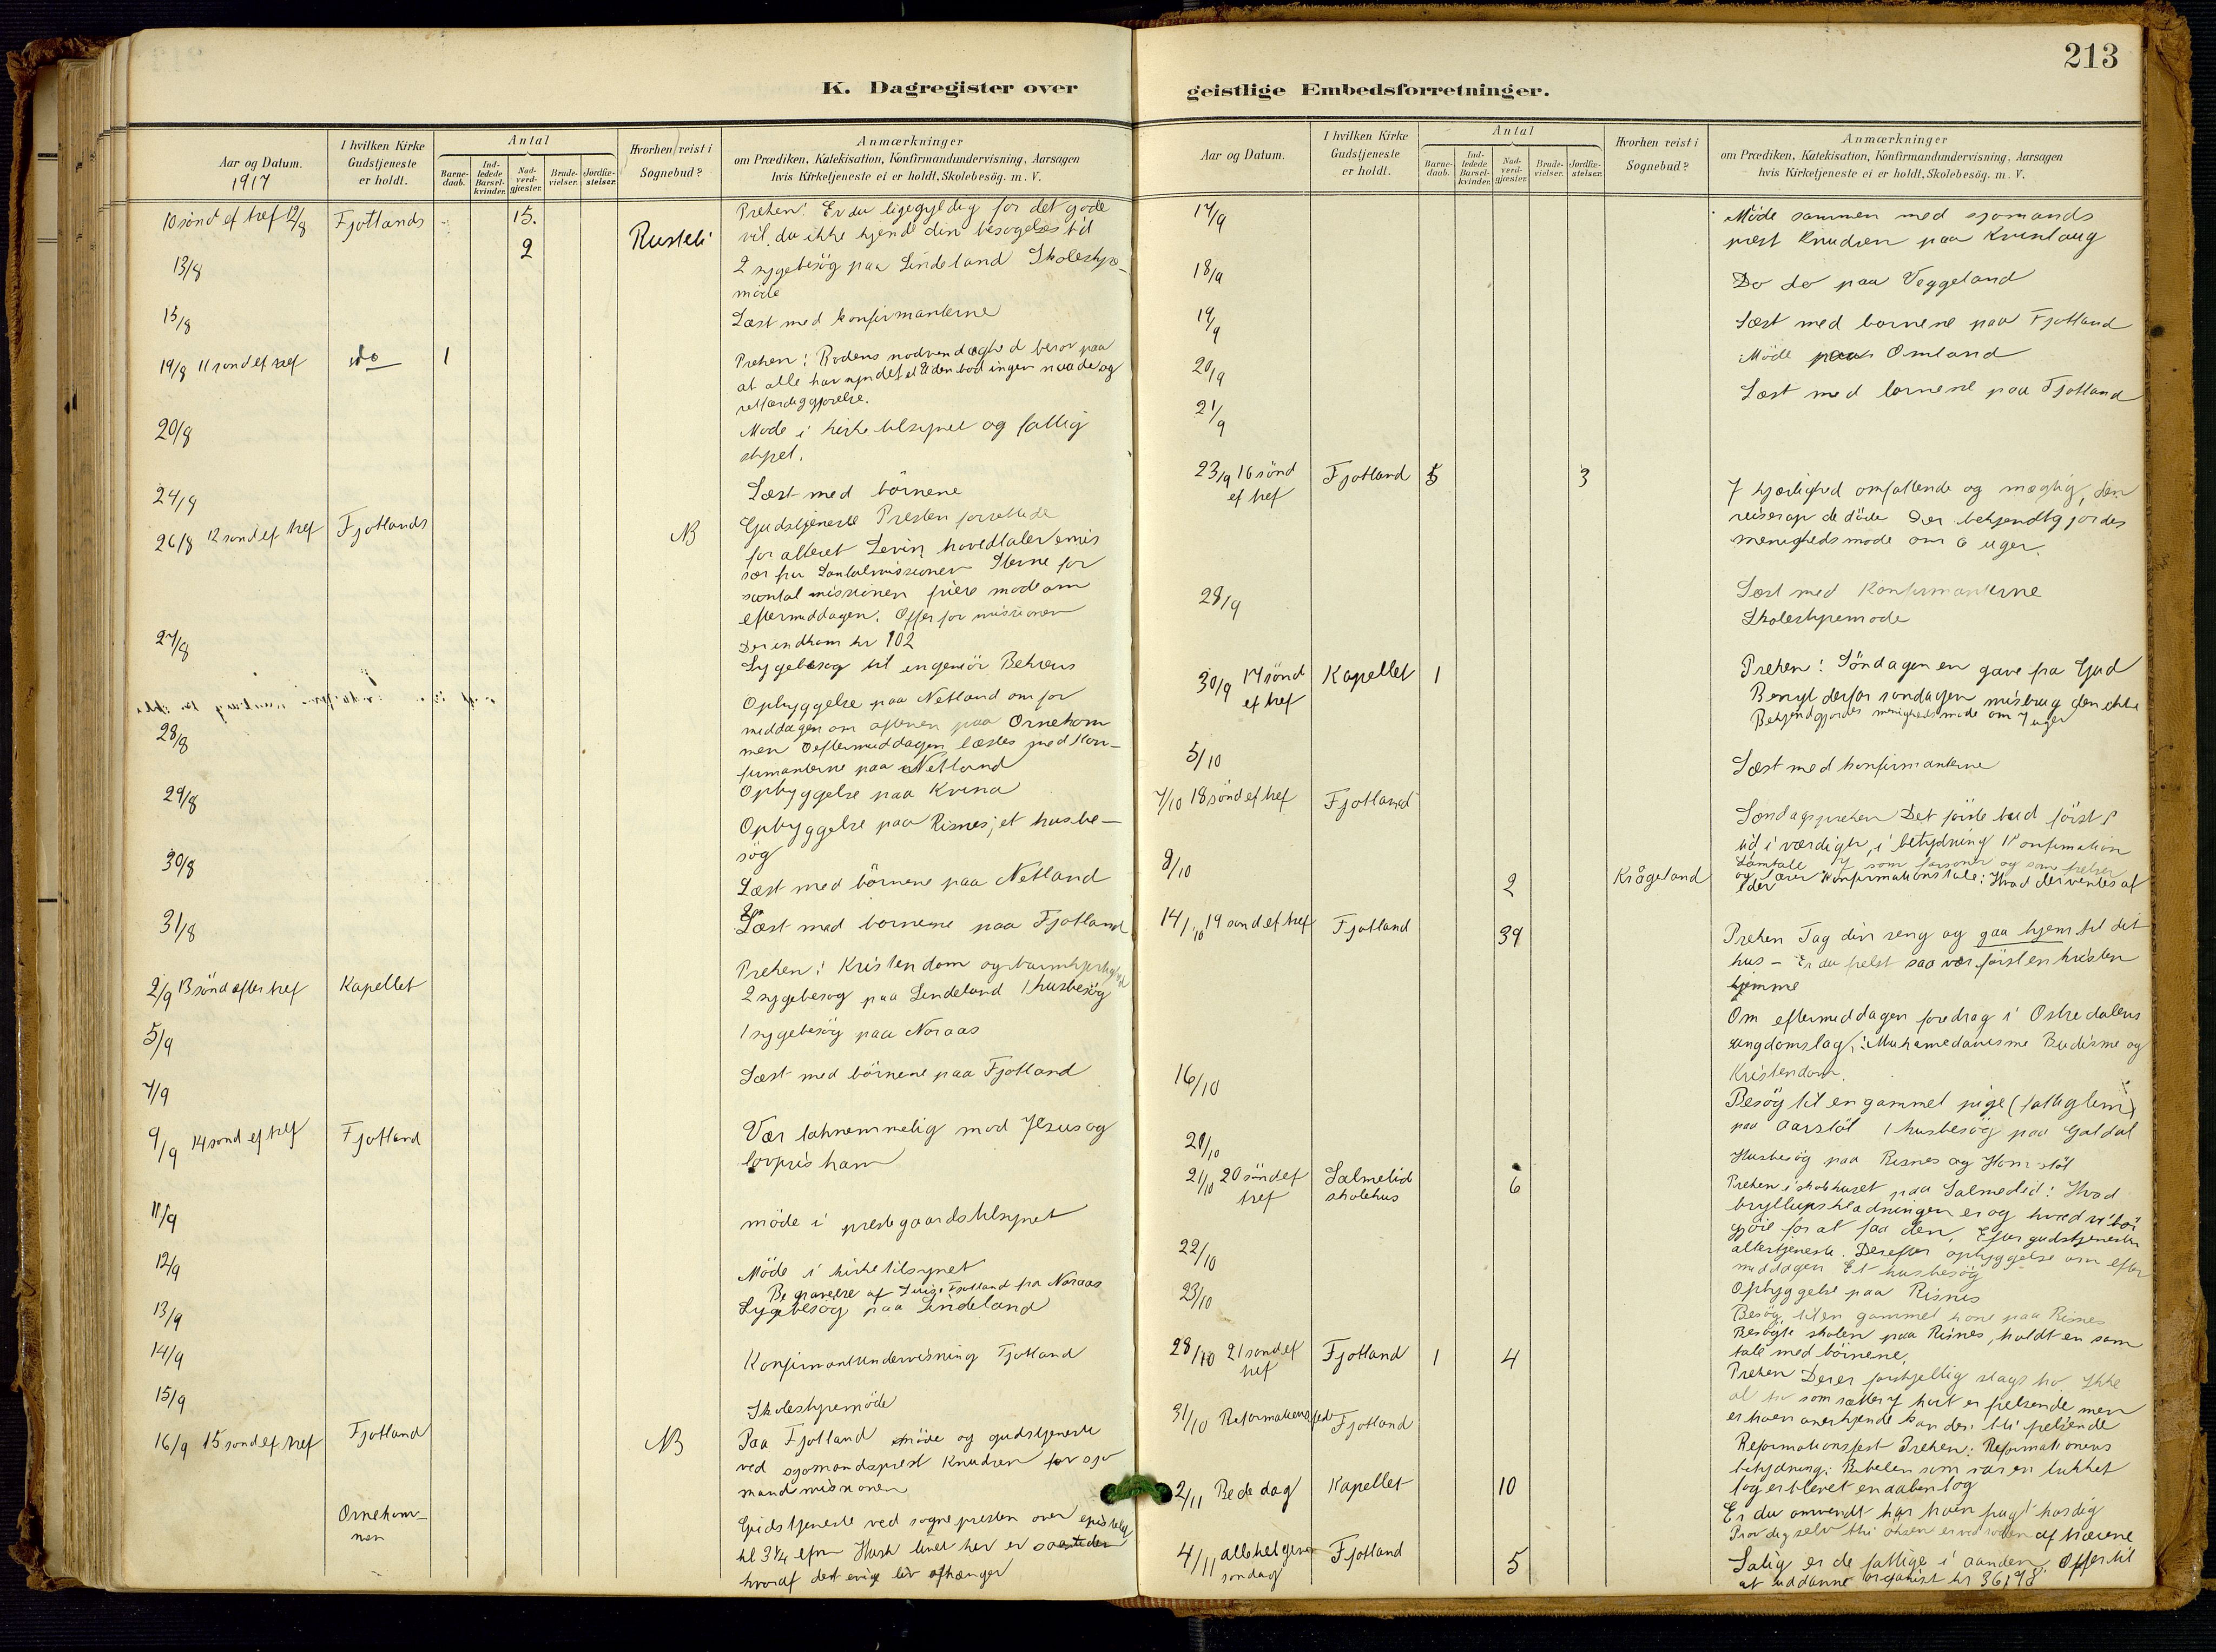 213
K. Dagregister over
geistlige Embedsforretninger.
Aar og Datum.
1917
I hvilken Kirke
Gudstjeneste
er holdt.
Antal
Barne-
daab.
Ind-
ledede
Barsel-
kvinder.
Nad-
verd-
gjæster.
Brude-
vielser.
Jordfæ-
stelser.
Hvorhen reist i
Sognebud?
Anmærkninger
om Prædiken, Katekisation, Konfirmandundervisning, Aarsagen
hvis Kirketjeneste ei er holdt, Skolebesög. m. V.
10 sönd ef tref 12/8 Fjotlands 15. Preken: Er du ligegyldig for det gode
vil du ikke kjende din besøgelses tid
13/8 2 Rusteli 2 sygebesög paa Lindeland Skolestyre-
möde
15/8 Læst med konfirmanterne
19/8 11 sond ef tref do 1 Preken: Bodens nodvendighed beror paa
at alle har syndet at uden bod ingen naade og
retfærdiggjorelse.
20/8 Mode i kirketilsynet og fattig
styret.
24/8 Læst med börnene
26/8 12 sond ef tref Fjotlands NB Gudstjeneste Presten forrettede
for alteret Levin hovedtaler emis
sær fra Santalmissionen Sterne for
santal missionen friere mode om
eftermiddagen. Offer for missionen
Der indkom kr 102
27/8 Sygebesog til ingeniör Behrens
Opbyggelse paa Netland om for
middagen om aftenen paa Ornekom
28/8 men O eftermiddagen læstes med kon-
firmanterne paa Netland
29/8 Opbyggelse paa Kvina
Opbyggelse paa Risnes; et husbe-
sög
30/8 Læst med börnene paa Netland
31/8 Læst med bornene paa Fjotland
2/9 13 sönd efter tref Kapellet Preken: Kristendom og barmhjertighed
2 sygebesog paa Lindeland 1 husbesög
5/9 1 sygebesög paa Noraas
7/9 Læst med börnene paa Fjotland
9/9 14 sond ef tref Fjotland Vær taknemmelig mod Jesus og
lovpris ham
11/9 möde i prestegaardstilsynet
12/9 Möde i kirketilsynet
Begravelse af Fjotland fra Noraas
13/9 Sygebesög paa Lindeland
14/9 Konfirmantundervisning Fjotland
15/9 Skolestyremöde
16/9 15 sond ef tref Fjotland NB Paa Fjotland möde og gudstjeneste
ved sjomandsprest Knudsen for sjo
mandsmissionen
Ornekom-
men
Gudstjeneste ved sognepresten over epistelen
til 3 1/4 efm Husk livet her er saatiden
hvoraf det evige liv afhænger
Aar og Datum.
I hvilken Kirke
Gudstjeneste
er holdt.
Antal
Barne-
daab.
Ind-
ledede
Barsel-
kvinder.
Nad-
verd-
gjæster.
Brude-
vielser.
Jordfæ-
stelser.
Hvorhen reist i
Sognebud?
Anmærkninger
om Prædiken, Katekisation, Konfirmandundervisning, Aarsagen
hvis Kirketjeneste ei er holdt, Skolebesög. m. V.
17/9 Möde sammen med sjomands
prest Knudsen paa Kvinlaug
18/9 Do do paa Veggeland
19/9 Læst med bornene paa Fjotland
20/9 Möde paa Omland
21/9 Læst med bornene paa Fjotland
23/9 16 sönd
ef tref
Fjotland 5 3 J kjærlighed omfattende og mægtig, den
reiser op de döde Der bekjendtgjordes
menighedsmode om 6 uger.
28/9 Læst med Konfirmanterne
Skolestyremode
30/9 17 sönd
ef tref
Kapellet 1 Preken: Söndagen en gave fra Gud
Benyt derfor sondagen misbrug den ikke
Bekjendtgjordes menighedsmode om 7 uger
5/10 Læst med konfirmanterne
7/10 18 sönd ef tref Fjotland Söndagspreken Det förste bud först i
tid i værdighet, i betydning Konfirmation
Samtale J som forsoner og som frelser
og lærer Konfirmationstale: Hvad der ventes af
eder
9/10 2 Krågeland
14/10 19 sond ef tref Fjotland 39 Preken Tag din seng og gaa hjem til dit
hus - Er du frelst saa vær först en kristen
hjemme
Om eftermiddagen foredrag i Ostre dalens
ungdomslag: Muhamedanisme Budisme og
Kristendom.
16/10 Besög til en gammel pige (fattiglem)
paa Aarstöl 1 husbesög paa Galdal
20/10 Husbesög paa Risnes og Homstöl
21/10 20 sönd ef
tref
Salmelid
skolehus
6 Preken i skolehuset paa Salmelid: Hvad
bryllupsklædningen er og hvad vi bör
gjöre for at faa den. Efter gudstjenesten
altertjeneste. Derefter opbyggelse om efter
middagen Et husbesög
22/10 Opbyggelse paa Risnes
23/10 Besög til en gammel kone paa Risnes
Besögte skolen paa Risnes, holdt en sam
tale med börnene.
28/10 21 sond ef
tref
Fjotland 1 4 Preken Der er forskjellig slags tro. Ikke
al tro som sætter J höit er frelsende men
er troen anerkjende kan den bli frelsende
31/10 Reformationsfest Fjotland Reformationsfest Preken: Reformationens
betydning: Bibelen som var en lukket
bog er blevet en aaben bog
2/11 Bededag Kapellet 10 Er du omvendt hör troen frugt har dig
Pröv dig selv thi öksen er ved roden af træerne
4/11 allehelgens
sondag
Fjotland 5 Salig er de fattige i aanden. Offer til
at uddanne organist kr 36,78